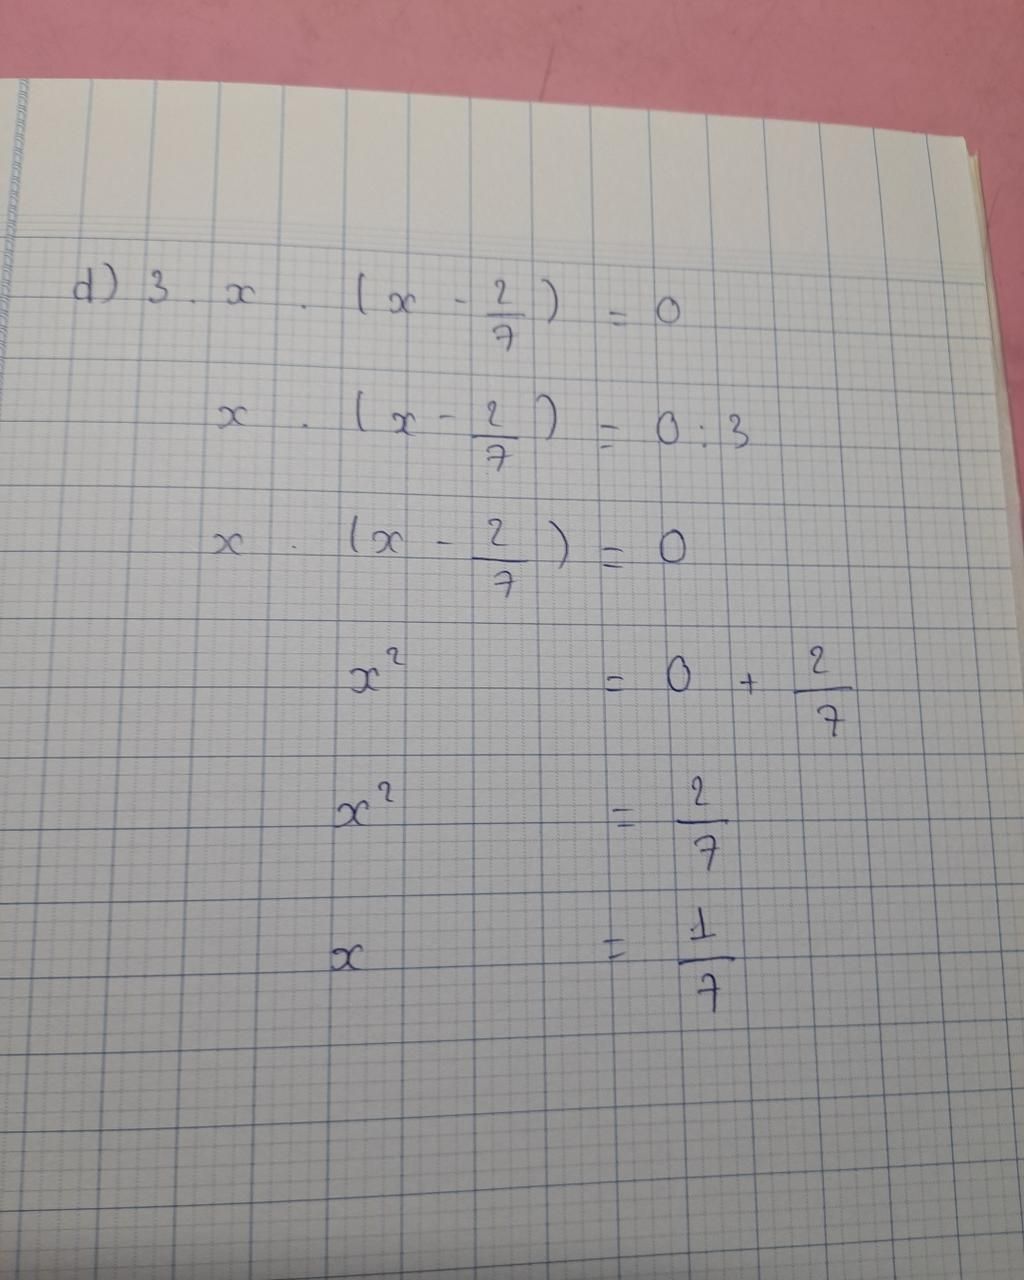 d) 3 . x . (x - 2/7) = 0
x . (x - 2/7) = 0 : 3
x . (x - 2/7) = 0
x² = 0 + 2/7
x² = 2/7
x = 1/7